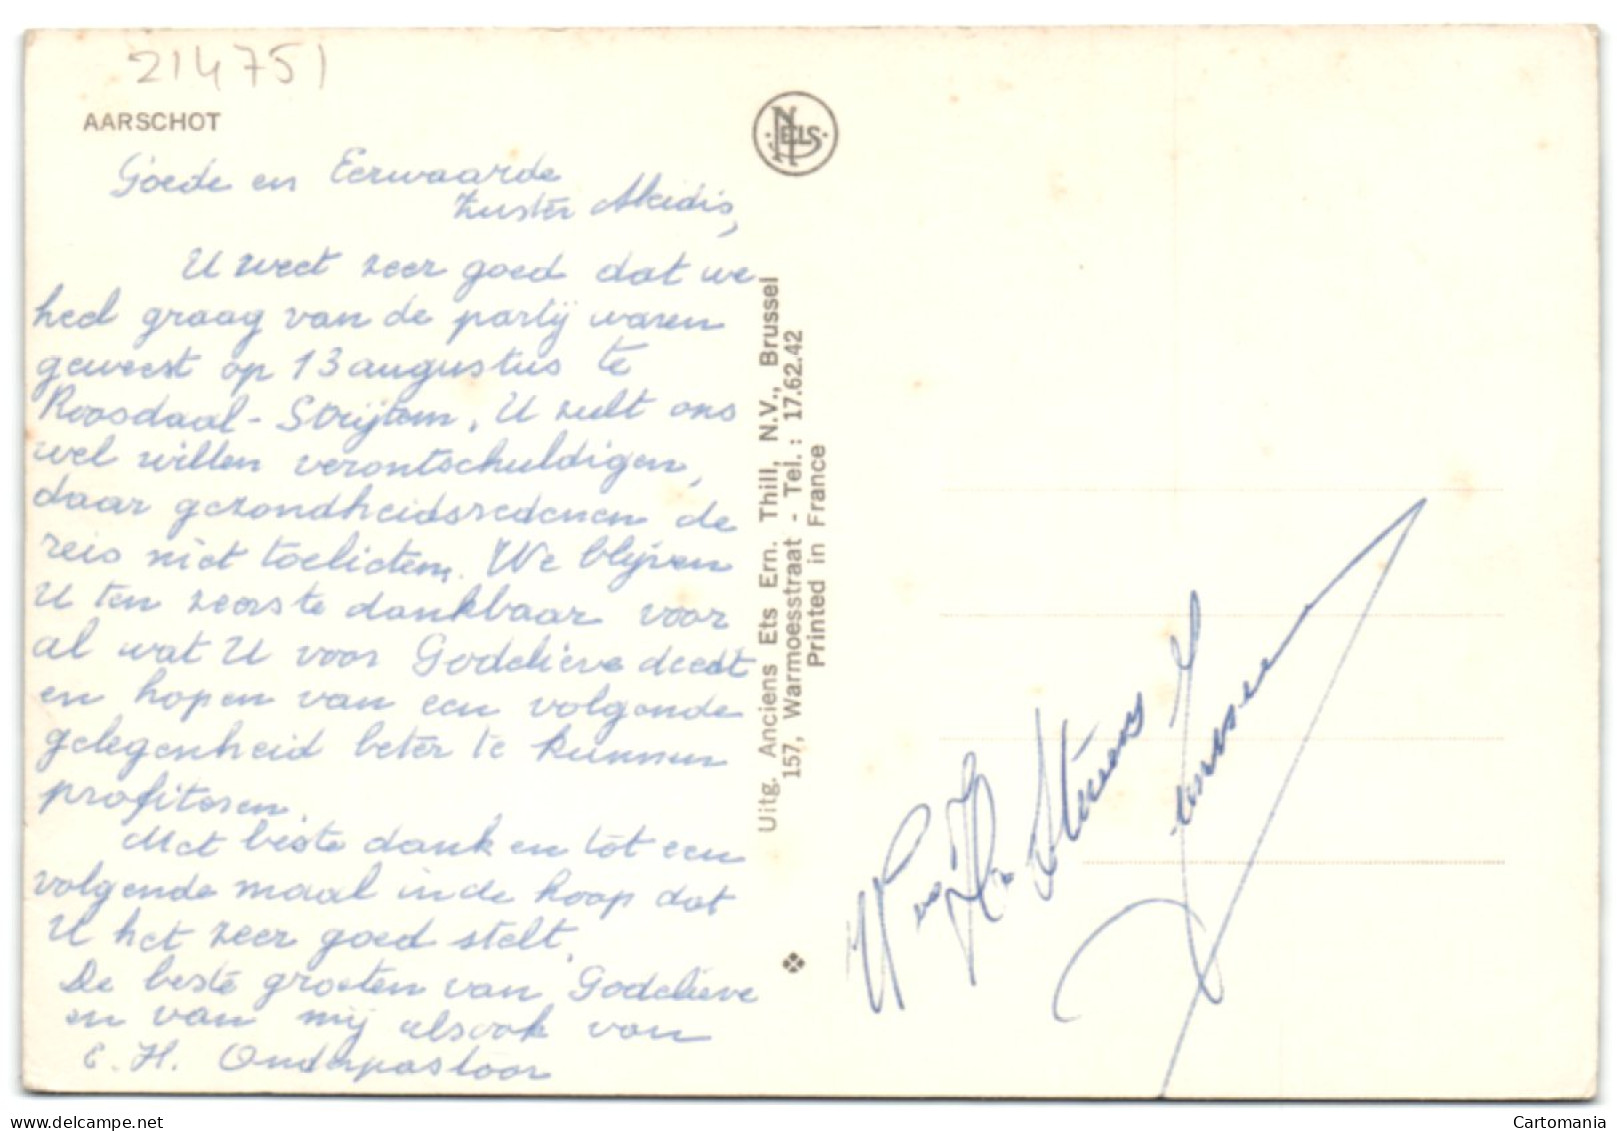 214751
AARSCHOT
NELS
Goede en Eerwaarde
Zuster Aleidis,
U weet zeer goed dat we
heel graag van de partij waren
geweest op 13 augustus te
Roosdaal-Strijtem. U zult ons
wel willen verontschuldigen,
daar gezondheidsredenen de
reis niet toelieten. We blijven
U ten zeerste dankbaar voor
al wat U voor Godelieve deedt
en hopen van een volgende
gelegenheid beter te kunnen
profiteren.
Met beste dank en tot een
volgende maal in de hoop dat
U het zeer goed stelt.
De beste groeten van Godelieve
en van mij alsook van
E. H. Onderpastoor
Uitg. Anciens Ets Ern. Thill, N.V., Brussel
157, Warmoesstraat - Tel. : 17.62.42
Printed in France
Stevens
Cartomania
www.delcampe.net